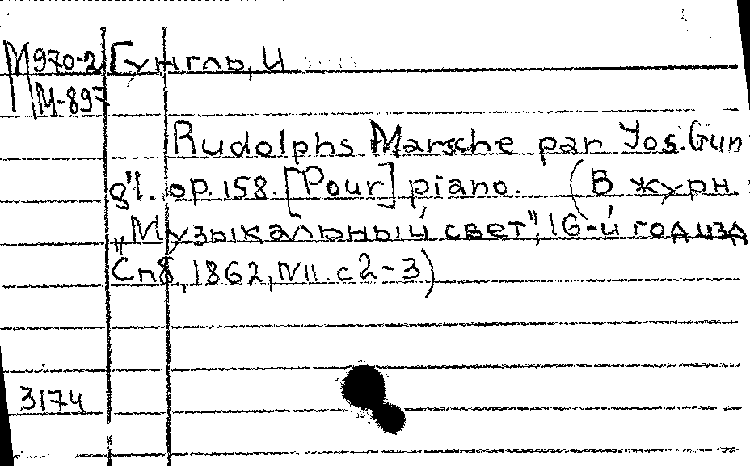 М970-2 Гунгль, И
М-897
Rudolphs Marsche par Jos. Gun
g'l. op. 158. [Pour] piano. (В журн.
„Музыкальный свет", 16-й год изд
Спб, 1862, N11. с 2-3)
3174